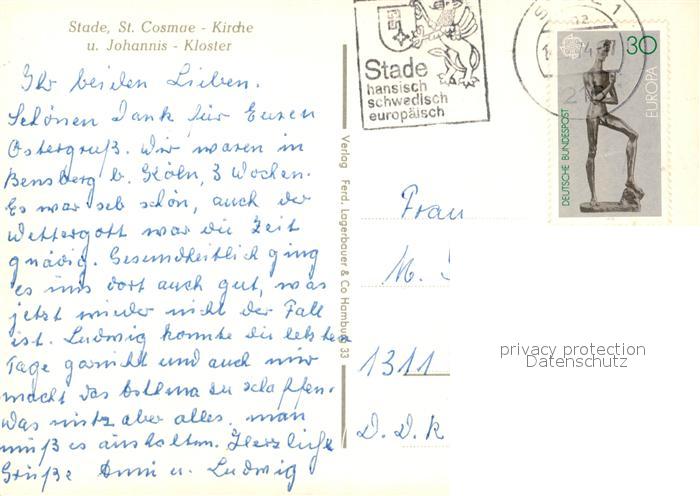 Stade, St. Cosmae - Kirche
u. Johannis - Kloster
Ihr beiden Lieben.
Schönen Dank für Euren
Ostergruß. Wir waren in
Bensberg b. Köln, 3 Wochen.
Es war seh schön, auch der
Wettergott war die Zeit
gnädig. Gesundheitlich ging
es uns dort auch gut, was
jetzt wieder nicht der Fall
ist. Ludwig konnte die letzten
Tage garnicht und auch mir
macht das Asthma zu schaffen.
Was nützt aber alles, man
muß es aushalten. Herzliche
Grüße Anni u. Ludwig
Verlag Ferd. Lagerbauer & Co Hamburg 33
Stade
hansisch
schwedisch
europäisch
1
21
30
EUROPA
DEUTSCHE BUNDESPOST
Frau
M.
1311
D. D. R
privacy protection
Datenschutz